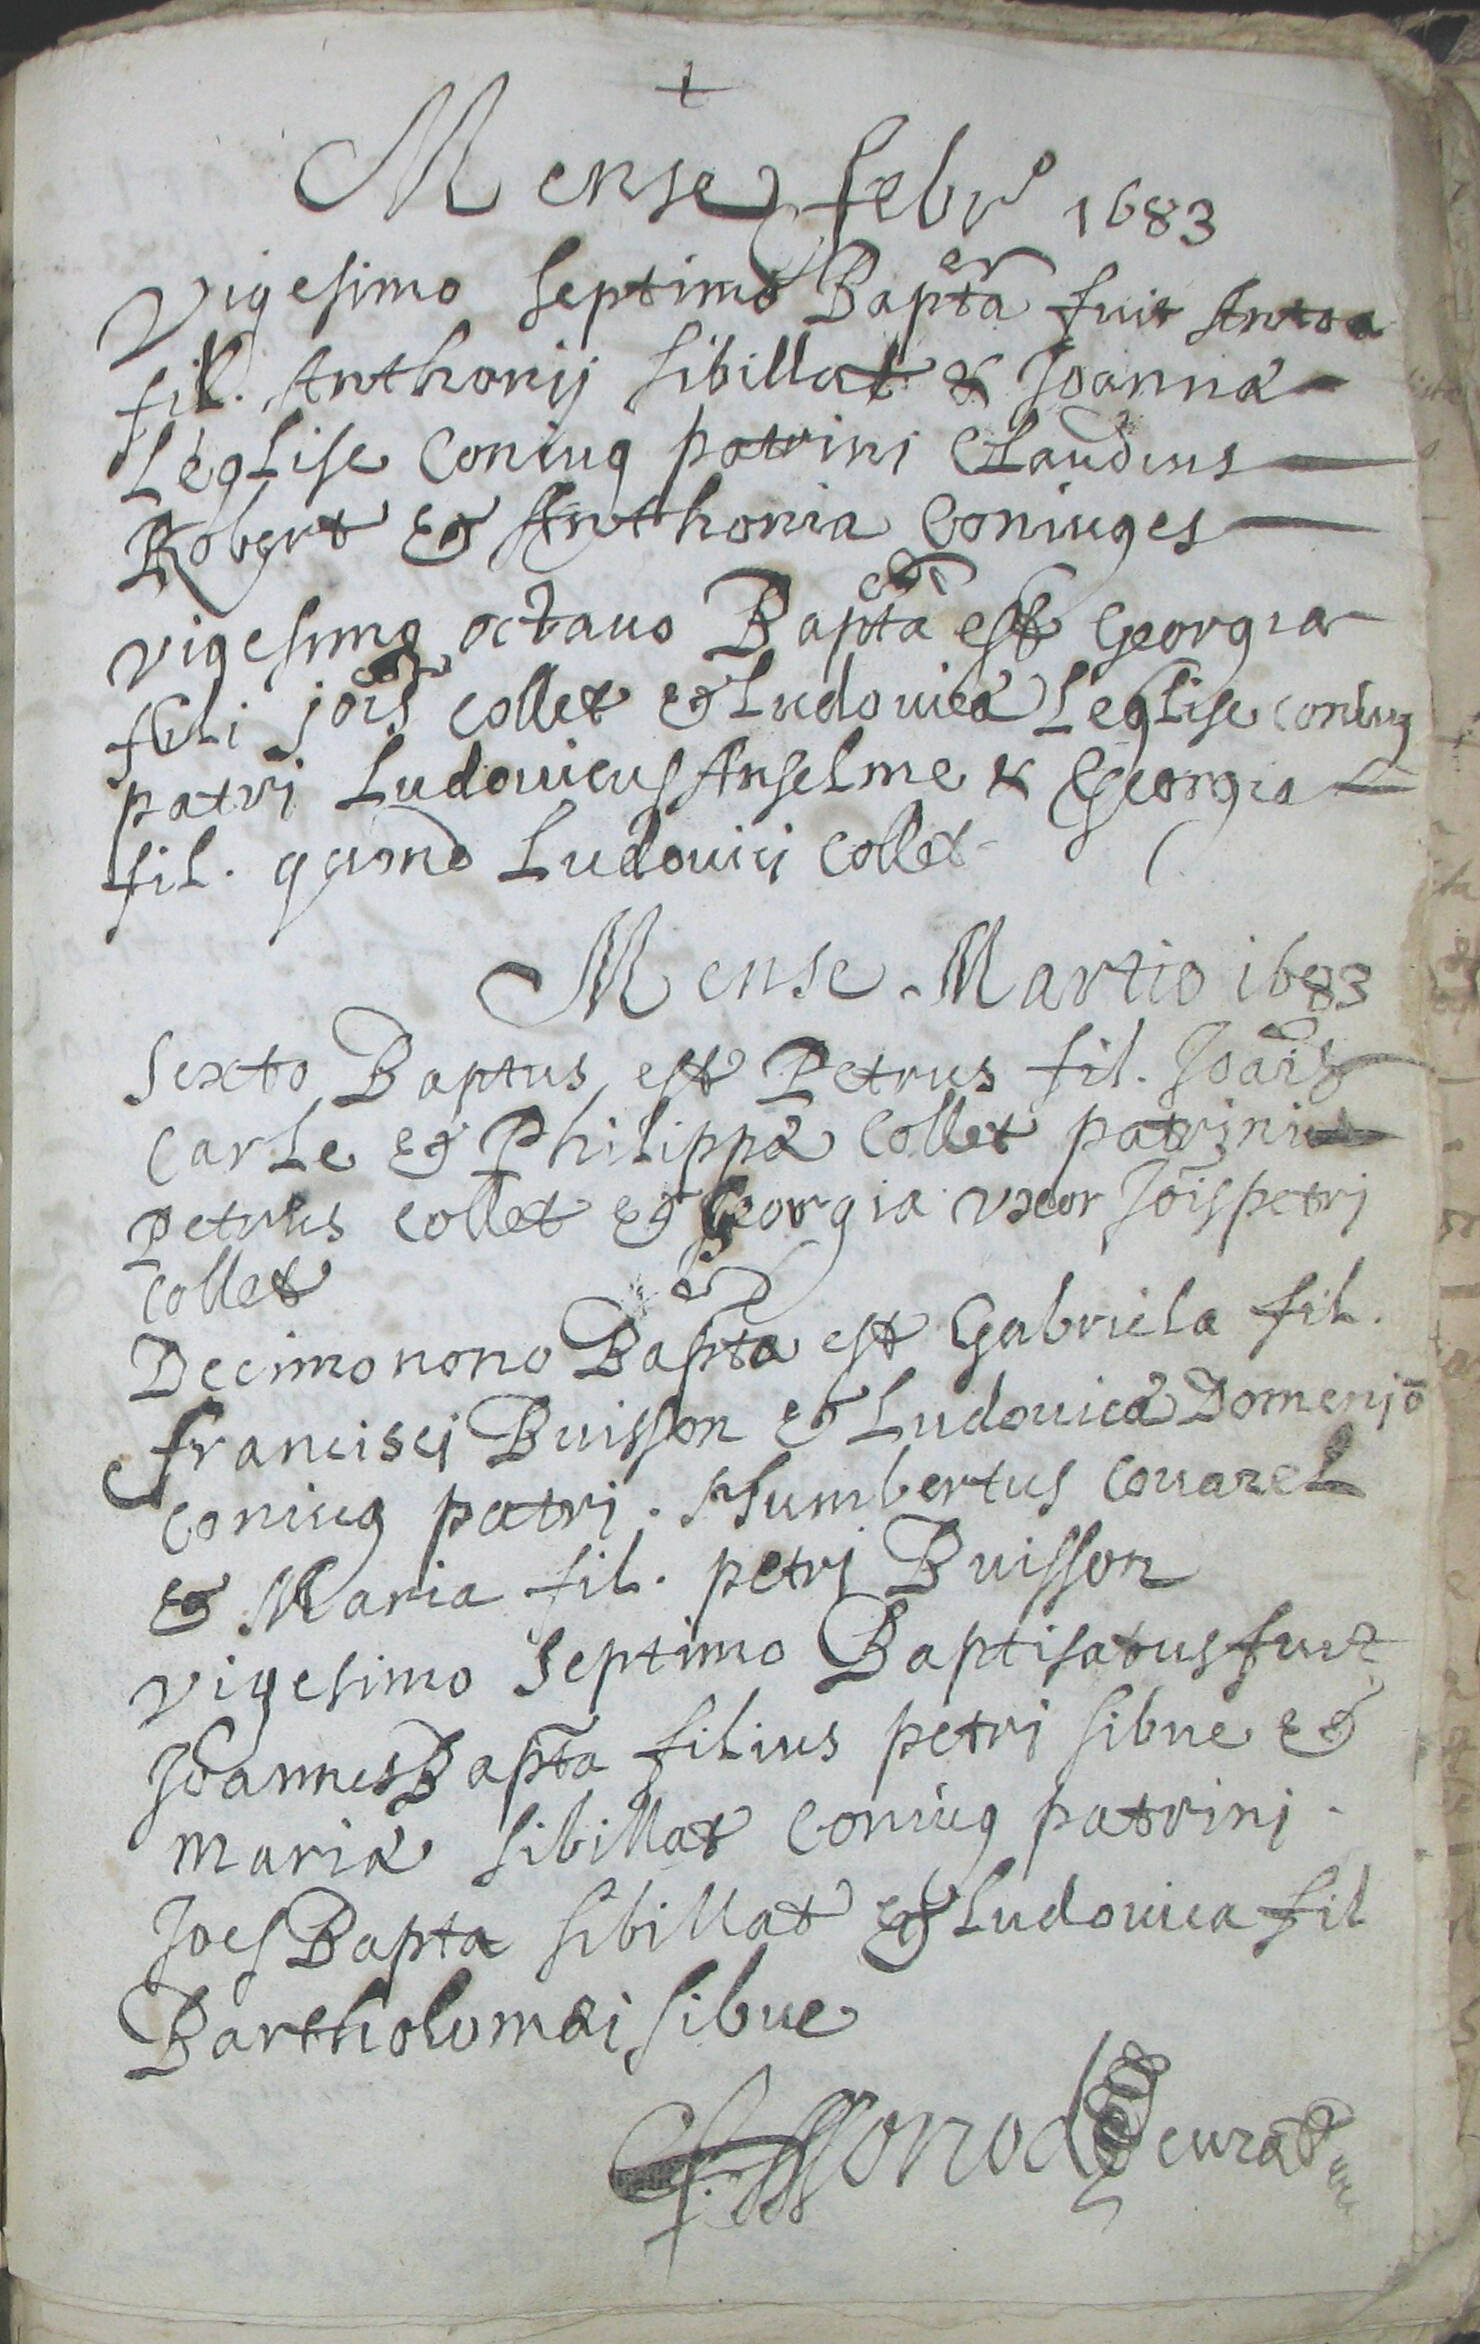 +
Mense febr° 1683
Vigesimo septimo Bapta fuit Antoa
fil. Anthonij sibillat & Joannæ
Leglise Coniug patrini Claudius
Robert et Anthonia Coniuges
vigesimo octavo Bapta est Georgia
fili Jois Collet et Ludovicæ Leglise coniug
patri Ludovicus Anselme & Georgia
fil. qumd Ludovici Collet
Mense Martio 1683
Sexto Baptus est Petrus fil. Joais
Carle et Philippæ Collet patrini
Petrus Collet et Georgia vxor Jois petri
Collet
Decimo nono Bapta est Gabriela fil.
francisci Buisson et Ludovicæ Domenjō
coniug patri. Humbertus Couarel
et Maria fil. petri Buisson
vigesimo septimo Baptisatus fuit
Joannes Bapta filius petri sibue et
mariæ sibillat Coniug patrini.
Joes Bapta sibillat et Ludovica fil
Bartholomæi sibue
curat